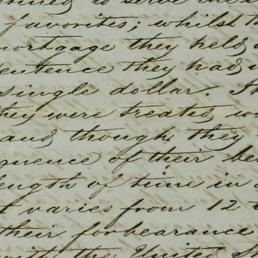 to serve the
favorites; whilst th
mortgage they held
sentence they had
single dollar. Th
they were treated, wo
and though they
quence of their be
length of time in
varies from 12 t
their forbearance
with the United St